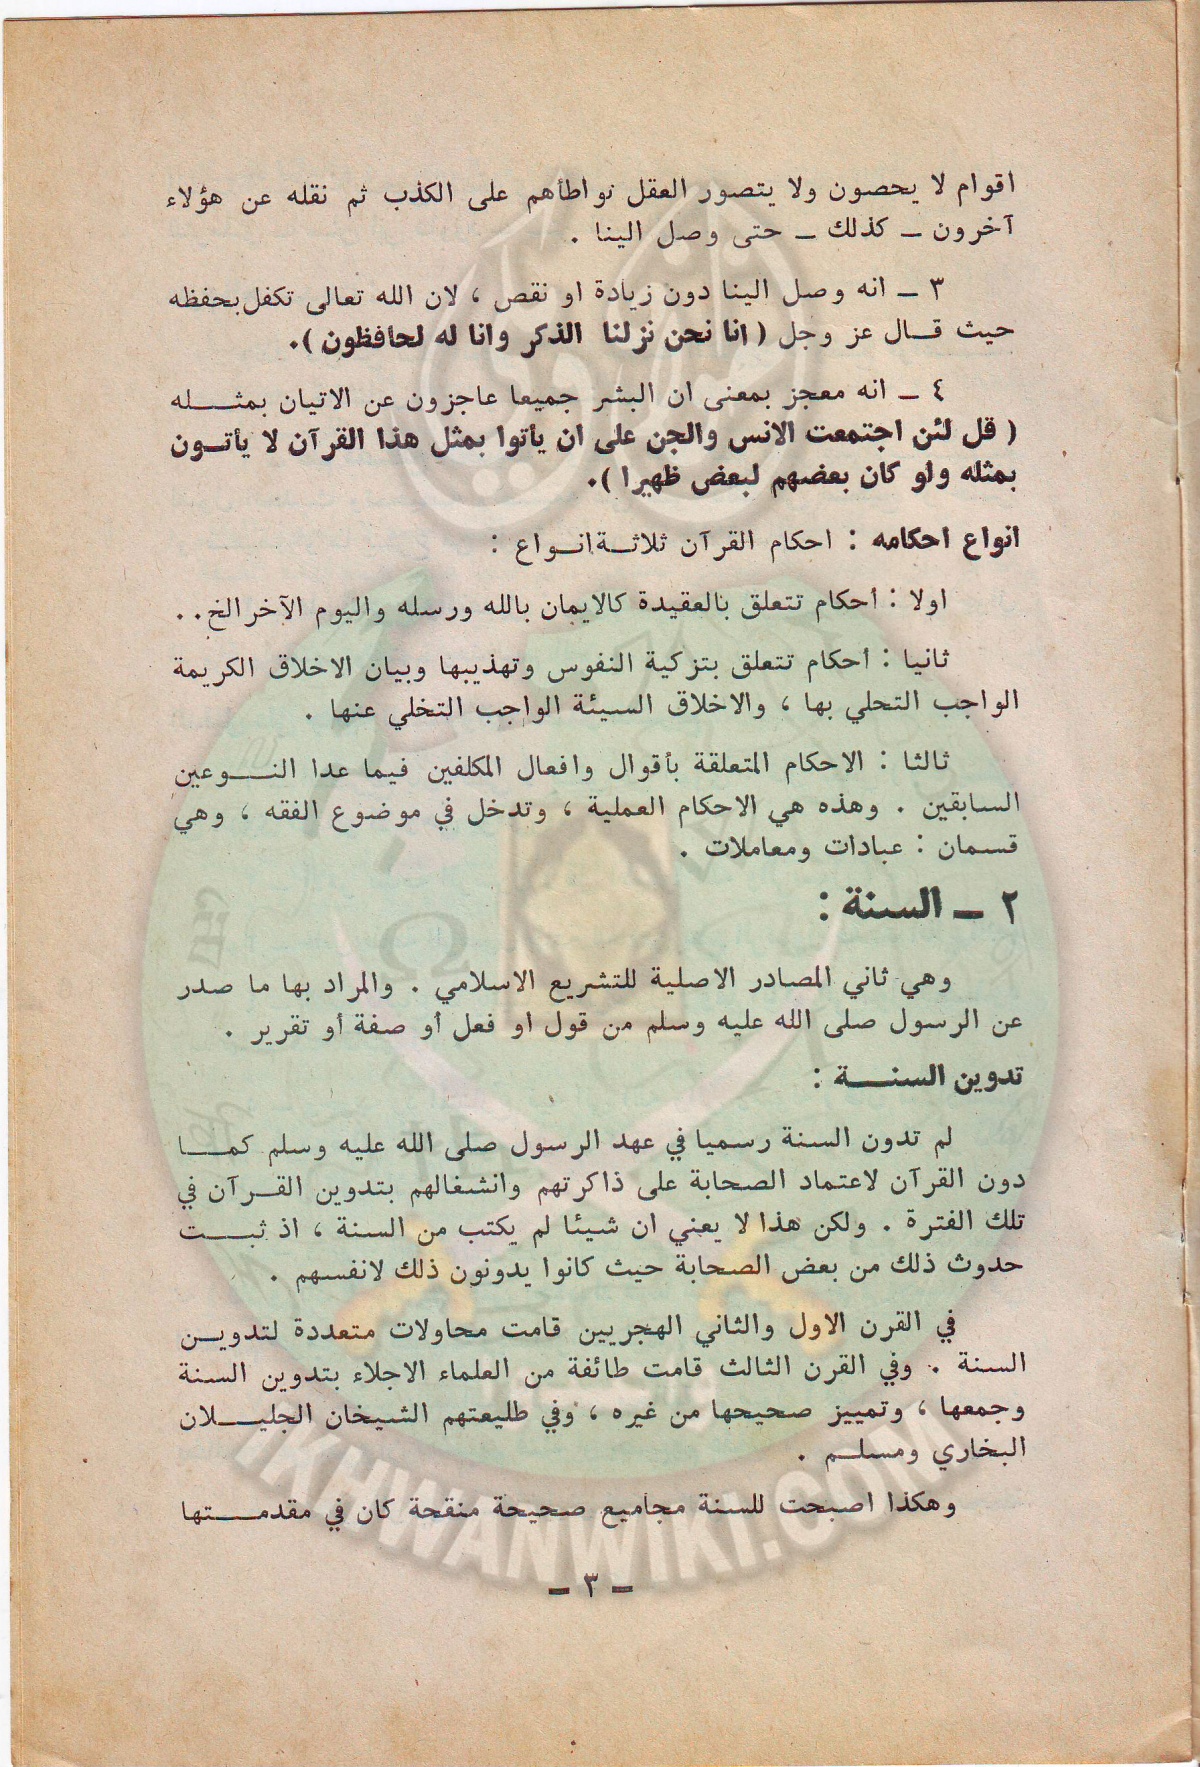 اقوام لا يحصون ولا يتصور العقل تواطأهم على الكذب ثم نقله عن هؤلاء
آخرون ــ كذلك ــ حتى وصل الينا .
٣ ــ انه وصل الينا دون زيادة او نقص ، لان الله تعالى تكفل بحفظه
حيث قــال عز وجل ( انا نحن نزلنا الذكر وانا له لحافظون ).
٤ ــ انه معجز بمعنى ان البشر جميعا عاجزون عن الاتيان بمثــــله
( قل لئن اجتمعت الانس والجن على ان يأتوا بمثل هذا القرآن لا يأتــون
بمثله ولو كان بعضهم لبعض ظهيرا ).
انواع احكامه : احكام القرآن ثلاثــة انــواع :
اولا : أحكام تتعلق بالعقيدة كالايمان بالله ورسله واليوم الآخر الخ . .
ثانيا : أحكام تتعلق بتزكية النفوس وتهذيبها وبيان الاخلاق الكريمة
الواجب التحلي بها ، والاخلاق السيئة الواجب التخلي عنها .
ثالثا : الاحكام المتعلقة بأقوال وافعال المكلفين فيما عدا النـــوعين
السابقين . وهذه هي الاحكام العملية ، وتدخل في موضوع الفقه ، وهي
قسمان : عبادات ومعاملات .
٢ ــ السنة :
وهي ثاني المصادر الاصلية للتشريع الاسلامي . والمراد بها ما صدر
عن الرسول صلى الله عليه وسلم من قول او فعل أو صفة أو تقرير .
تدوين السنـــة :
لم تدون السنة رسميا في عهد الرسول صلى الله عليه وسلم كمـــا
دون القرآن لاعتماد الصحابة على ذاكرتهم وانشغالهم بتدوين القــرآن في
تلك الفترة . ولكن هذا لا يعني ان شيئا لم يكتب من السنة ، اذ ثبـــت
حدوث ذلك من بعض الصحابة حيث كانوا يدونون ذلك لانفسهم .
في القرن الاول والثاني الهجريين قامت محاولات متعددة لتدويــن
السنة . وفي القرن الثالث قامت طائفة من العلماء الاجلاء بتدوين السنة
وجمعها ، وتمييز صحيحها من غيره ، وفي طليعتهم الشيخان الجليـــلان
البخاري ومسلــم .
وهكذا اصبحت للسنة مجاميع صحيحة منقحة كان في مقدمـــتها
ــ ٣ ــ
IKHWANWIKI.COM